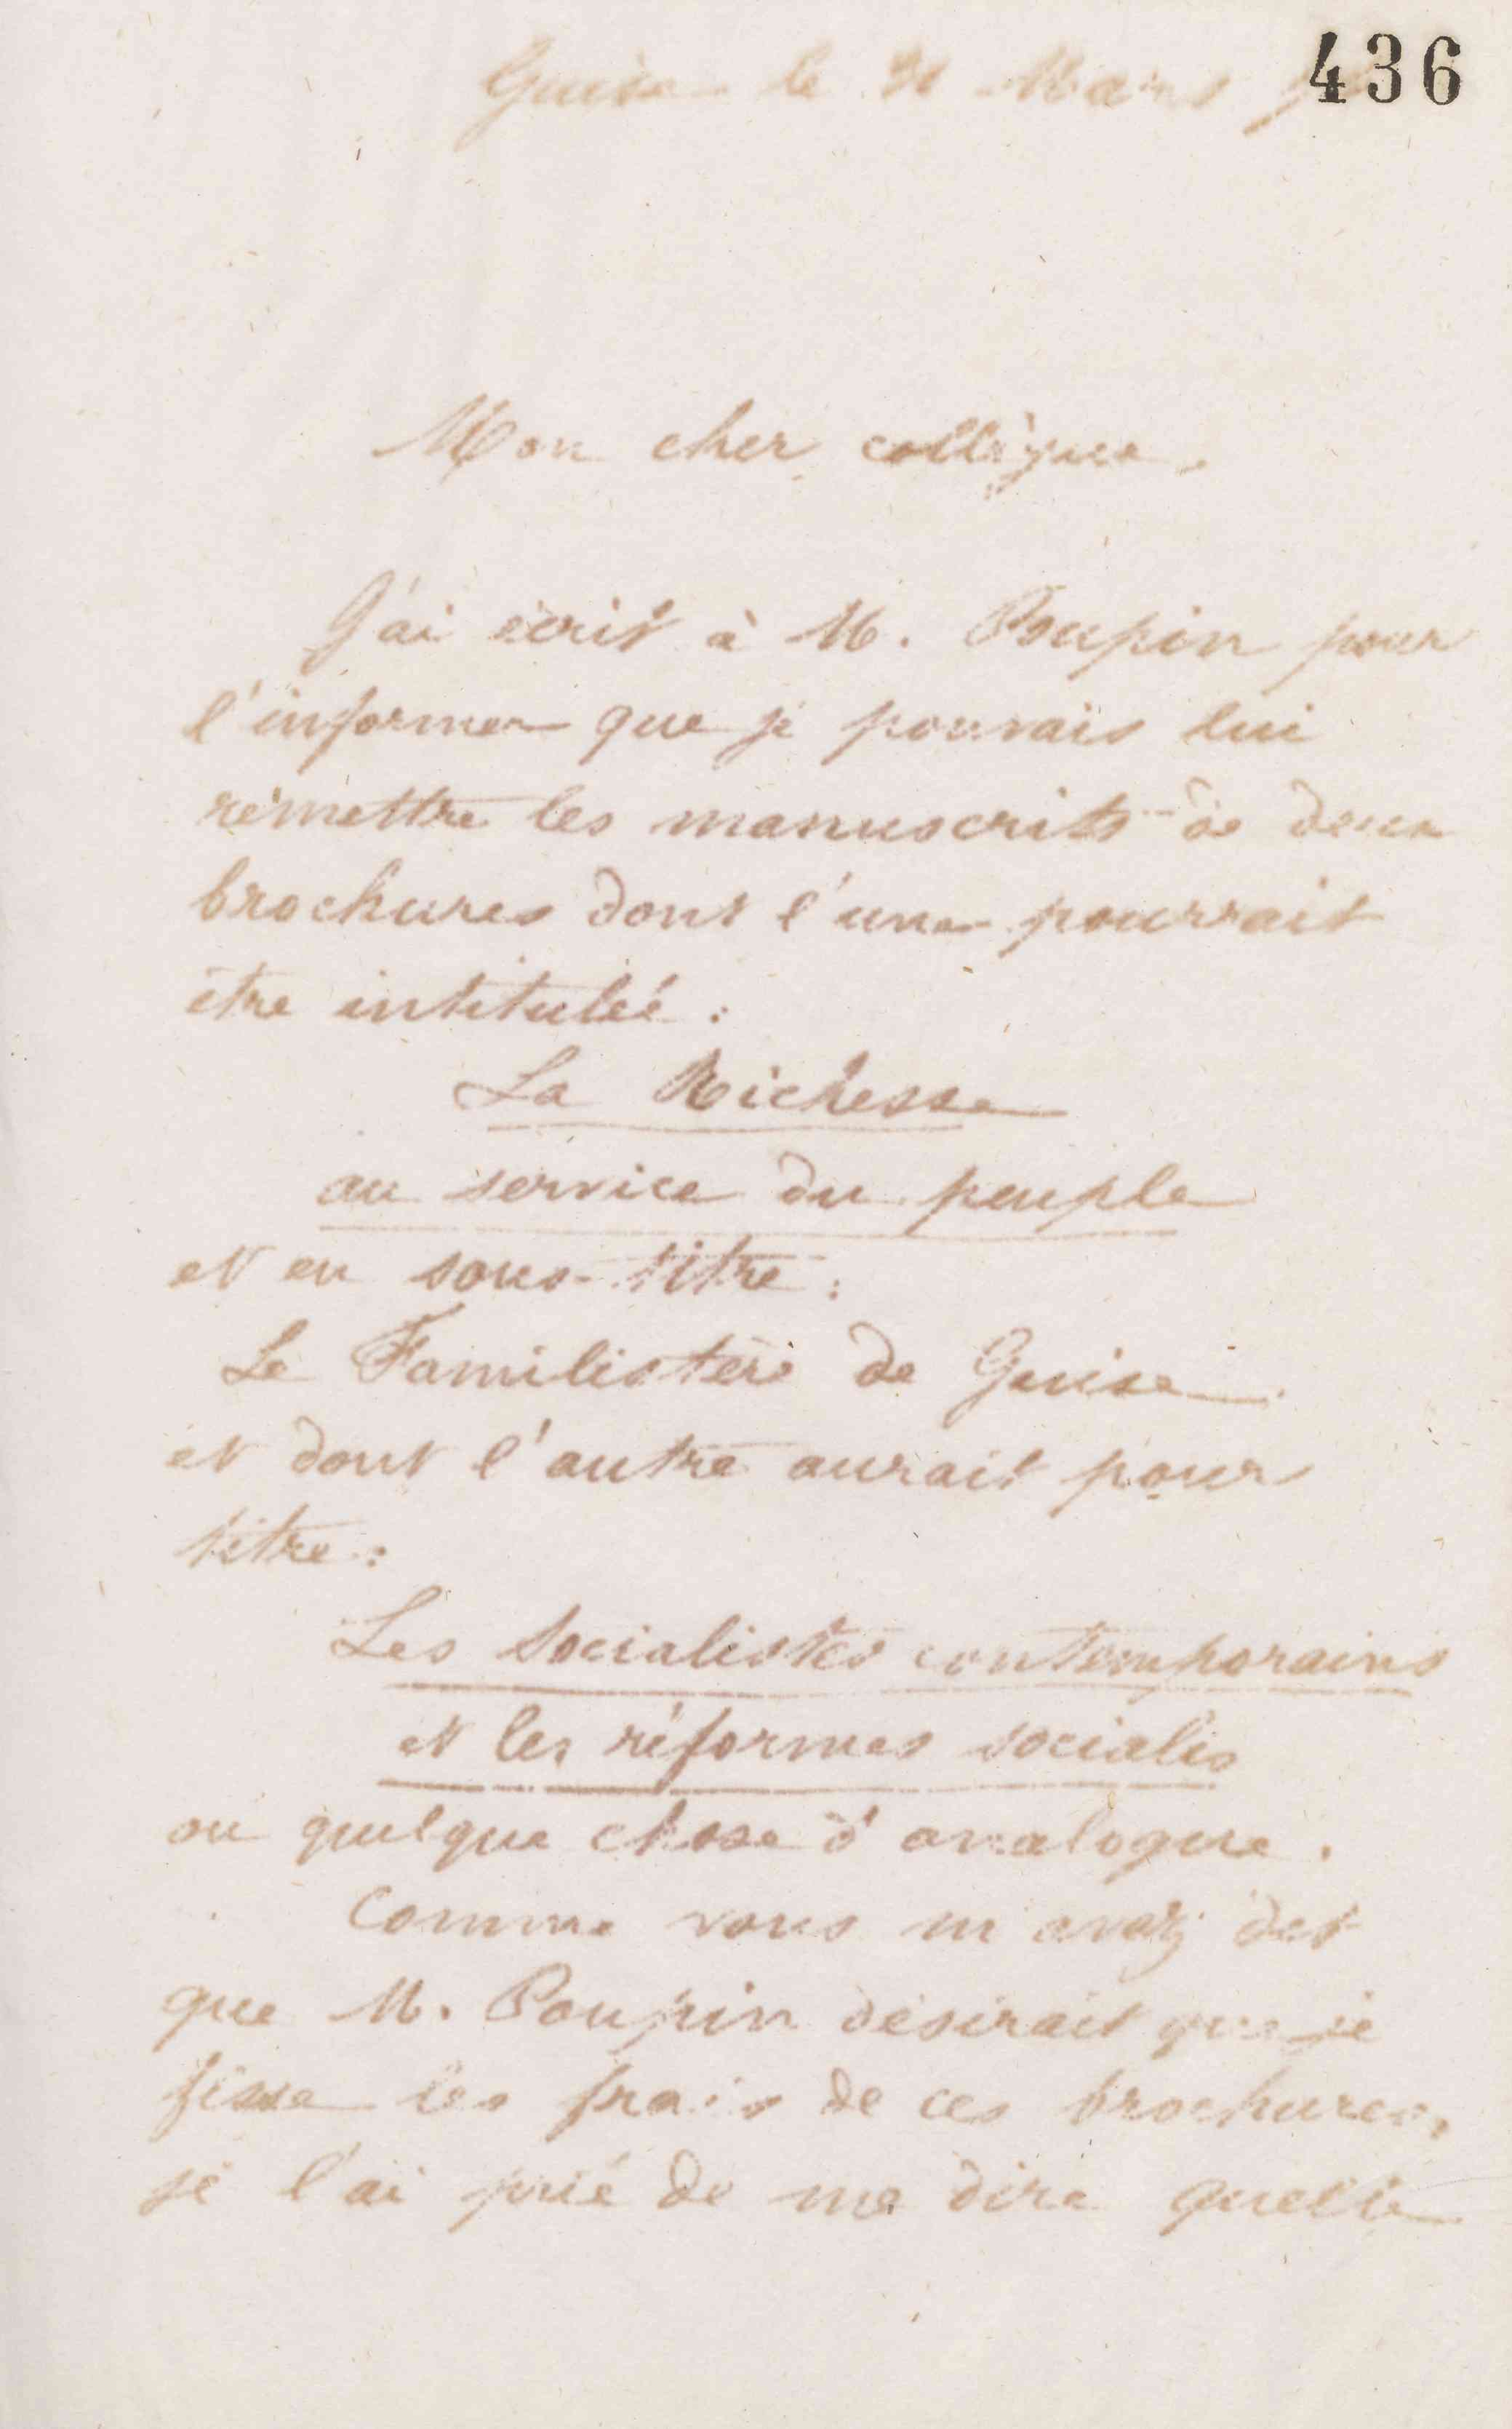 436
Guise le Mars
Mon cher collègue,
J'ai écrit à M. Poupin pour
l'informer que je pouvais lui
remettre les manuscrits de deux
brochures dont l'une pourrait
être intitulée :
La Richesse
au service du peuple
et en sous-titre :
Le Familistère de Guise
et dont l'autre aurait pour
titre :
Les Socialistes contemporains
et les réformes sociales
ou quelque chose d'analogue.
Comme vous m'avez dit
que M. Poupin désirait que je
fisse les frais de ces brochures,
je l'ai prié de me dire quelle